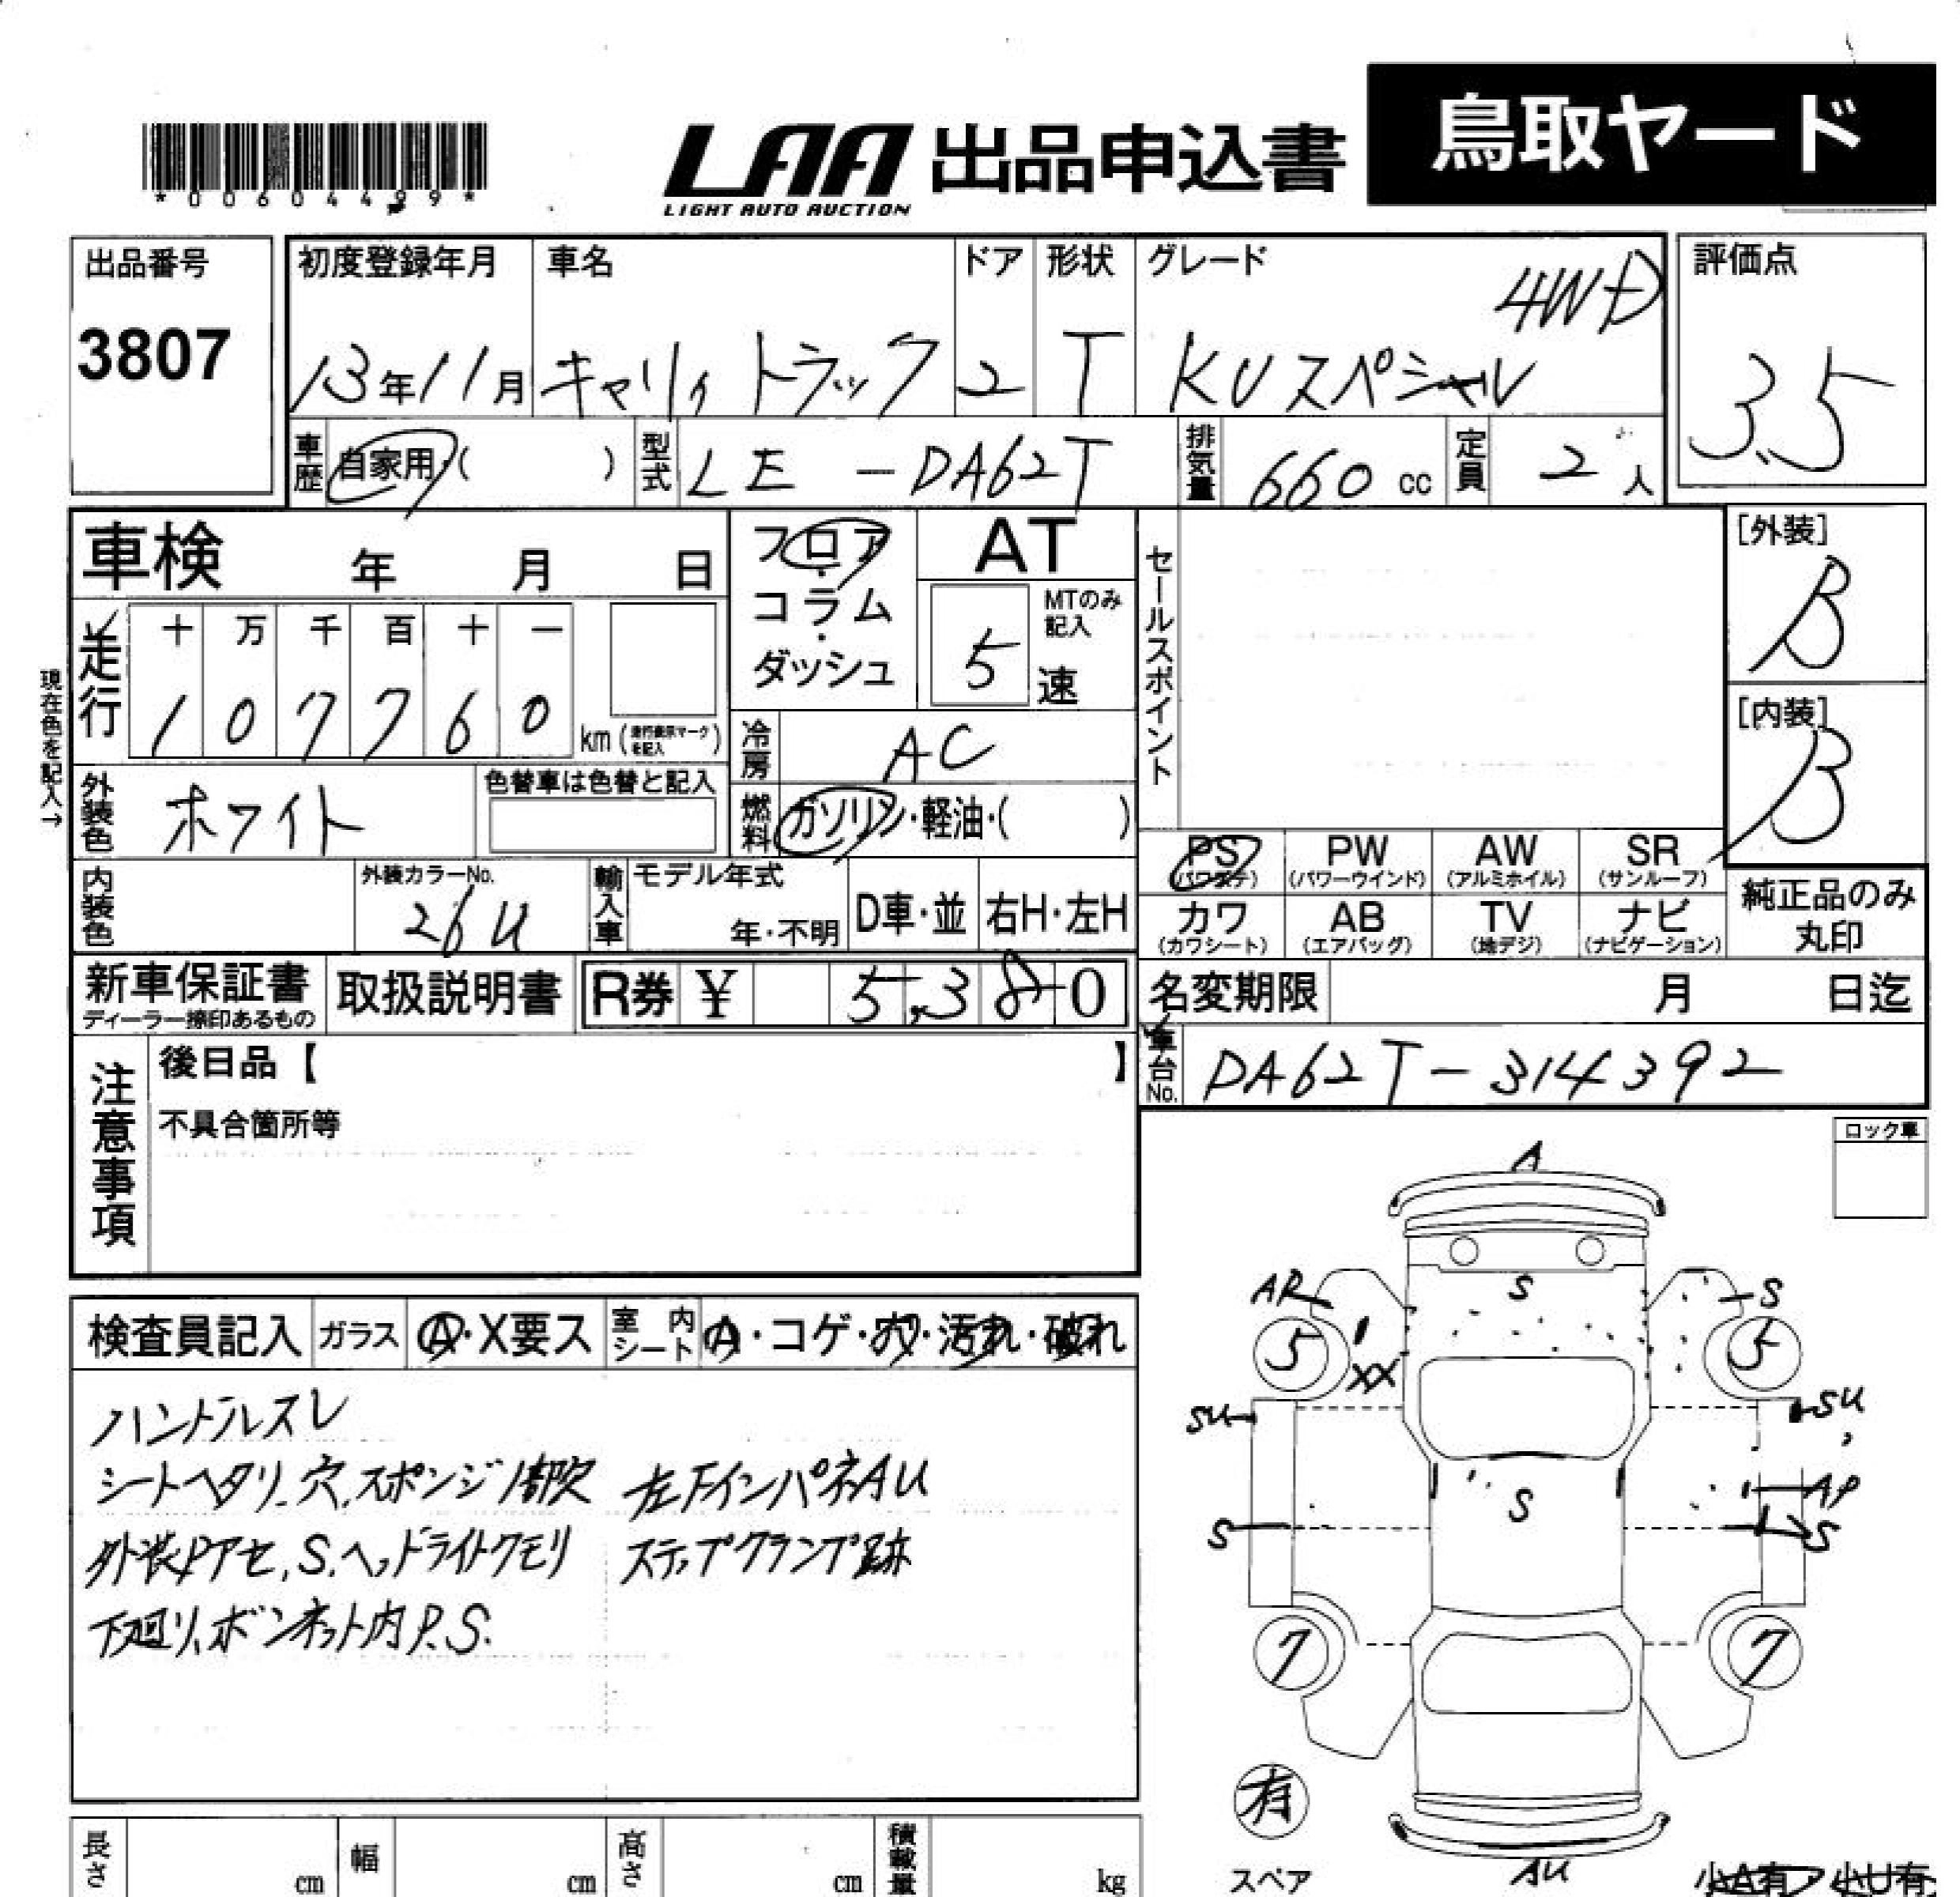 *00604499*
LAA 出品申込書 鳥取ヤード
LIGHT AUTO AUCTION
出品番号 初度登録年月 車名 ドア 形状 グレード 評価点
4WD
3807 13年11月 キャリィトラック 2 T KUスペシャル 3.5
車歴 自家用・( ) 型式 LE-DA62T 排気量 660cc 定員 2人
車検 年 月 日 フロア・コラム・ダッシュ AT セールスポイント [外装]
B
MTのみ記入
5速
走行 十 万 千 百 十 一
現在色を記入→
1 0 7 7 6 0 km (走行表示マークを記入)
冷房 AC
[内装]
B
外装色 ホワイト 色替車は色替と記入 燃料 ガソリン・軽油・( )
PS PW AW SR
(パワステ) (パワーウインド) (アルミホイル) (サンルーフ)
内装色 外装カラーNo. 26U 輸入車 モデル年式 年・不明 D車・並 右H・左H
カワ AB TV ナビ
(カワシート) (エアバッグ) (地デジ) (ナビゲーション)
純正品のみ
丸印
新車保証書 取扱説明書 R券 ¥ 5,380 名変期限 月 日迄
ディーラー捺印あるもの
車台No. DA62T-314392
注意事項 後日品【 】
不具合箇所等
ロック車
検査員記入 ガラス A・X要ス 室内シート A・コゲ・穴・汚れ・破れ
ハンドルスレ
シートヘタリ、穴、スポンジ1部欠 左下インパネAU
外装Pアセ、S、ヘッドライトクモリ ステップクランプ跡
下廻り、ボンネット内P.S.
A
S
AR S
5 5
XX
SU SU
AP
S
S S
7 7
有
スペア AU 小A有 小U有
長さ cm 幅 cm 高さ cm 積載量 kg